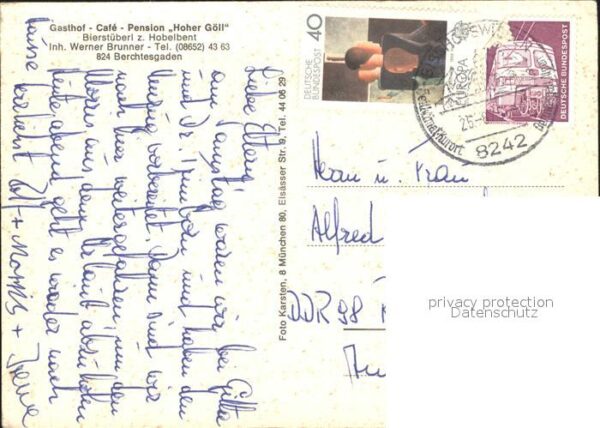 Gasthof - Café - Pension „Hoher Göll"
Bierstüberl z. Hobelbent
Inh. Werner Brunner - Tel. (08652) 43 63
824 Berchtesgaden
Liebe Eltern!
am Samstag waren wir bei Gitta
und haben den
vorbereitet. Dann sind wir
nach hier weitergefahren, um den
Morris aus dem Urlaub abzuholen.
Heute abend geht es wieder nach
Hause
+ Morris + Irene
Foto Karsten, 8 München 80, Elsässer Str. 9, Tel. 44 06 29
40
DEUTSCHE
BUNDESPOST
EUROPA
DEUTSCHE BUNDESPOST
8242
Herrn u. Frau
Alfred
DDR 98
privacy protection
Datenschutz